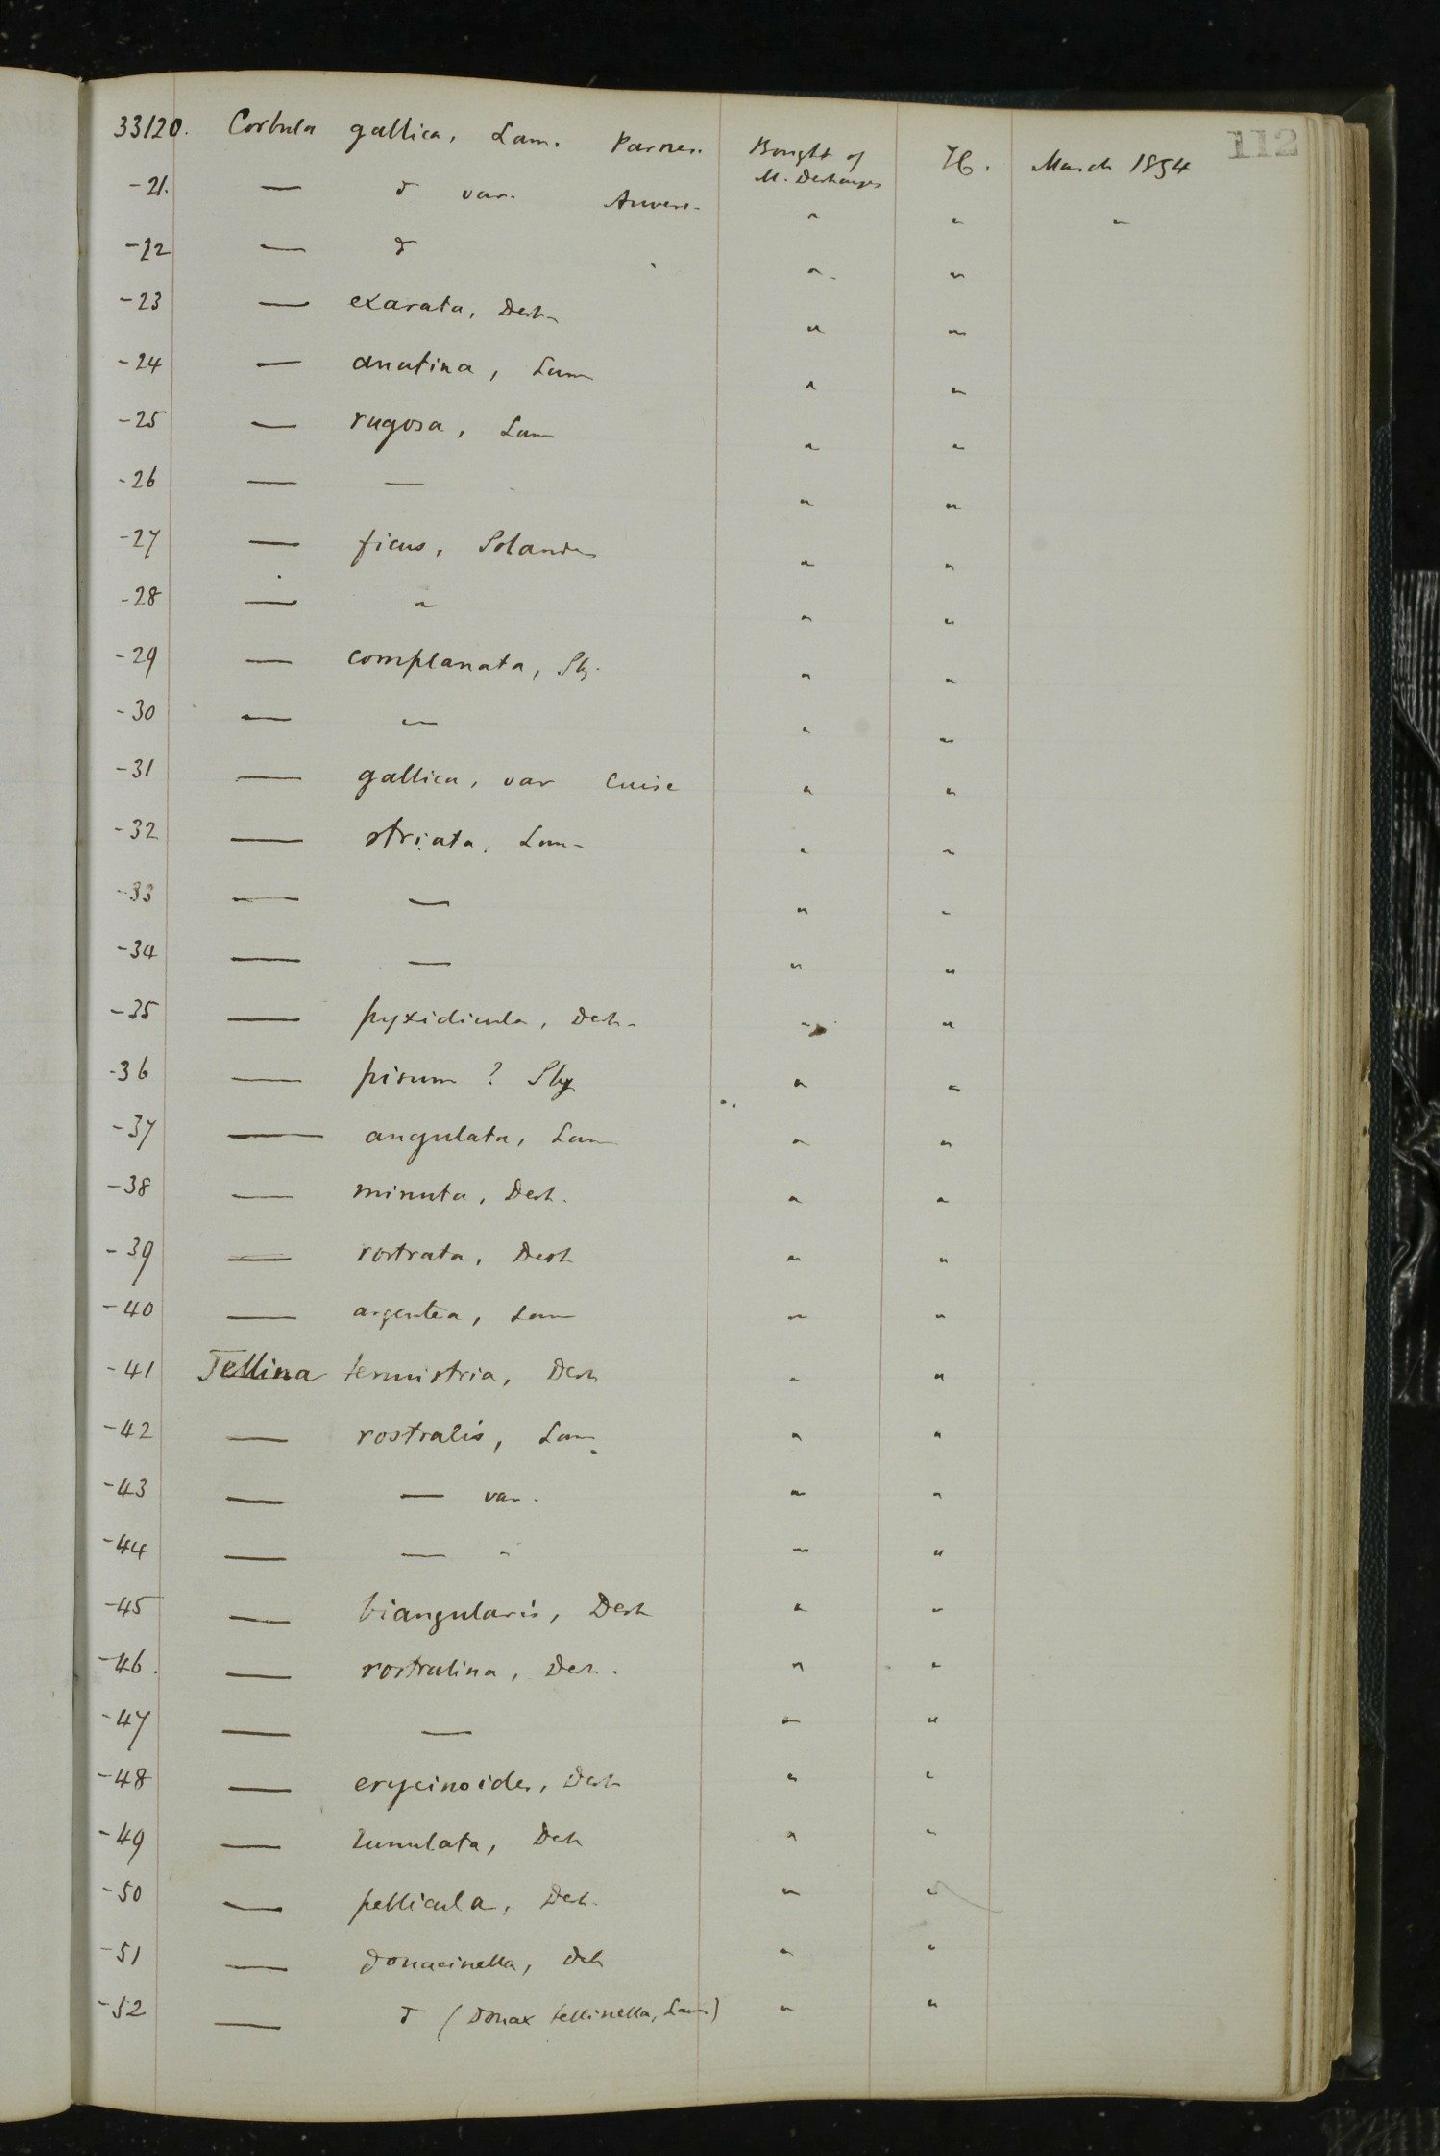 112
33120. Corbula gallica, Lam. Parnes. Bought of M. Deshayes H. March 1854
-21. — d var. Anvers. " " "
-22 — d " "
-23 — exarata, Desh " "
-24 — anatina, Lam " "
-25 — rugosa, Lam " "
-26 — — " "
-27 — ficus, Solander " "
-28 — " " "
-29 — complanata, Sby. " "
-30 — " " "
-31 — gallica, var Cuise " "
-32 — striata, Lam- " "
-33 — — " "
-34 — — " "
-35 — pyxidicula, Desh- " "
-36 — pisum ? Sby " "
-37 — angulata, Lam " "
-38 — minuta, Desh. " "
-39 — rostrata, Desh " "
-40 — argentea, Lam " "
-41 Tellina tenuistria, Desh " "
-42 — rostralis, Lam " "
-43 — — var. " "
-44 — — " " "
-45 — biangularis, Desh " "
-46. — rostralina, Des. " "
-47 — — " "
-48 — erycinoides, Desh " "
-49 — lunulata, Desh " "
-50 — pellicula, Desh. " "
-51 — donacinella, Desh " "
-52 — d (Donax tellinella, Lam.) " "